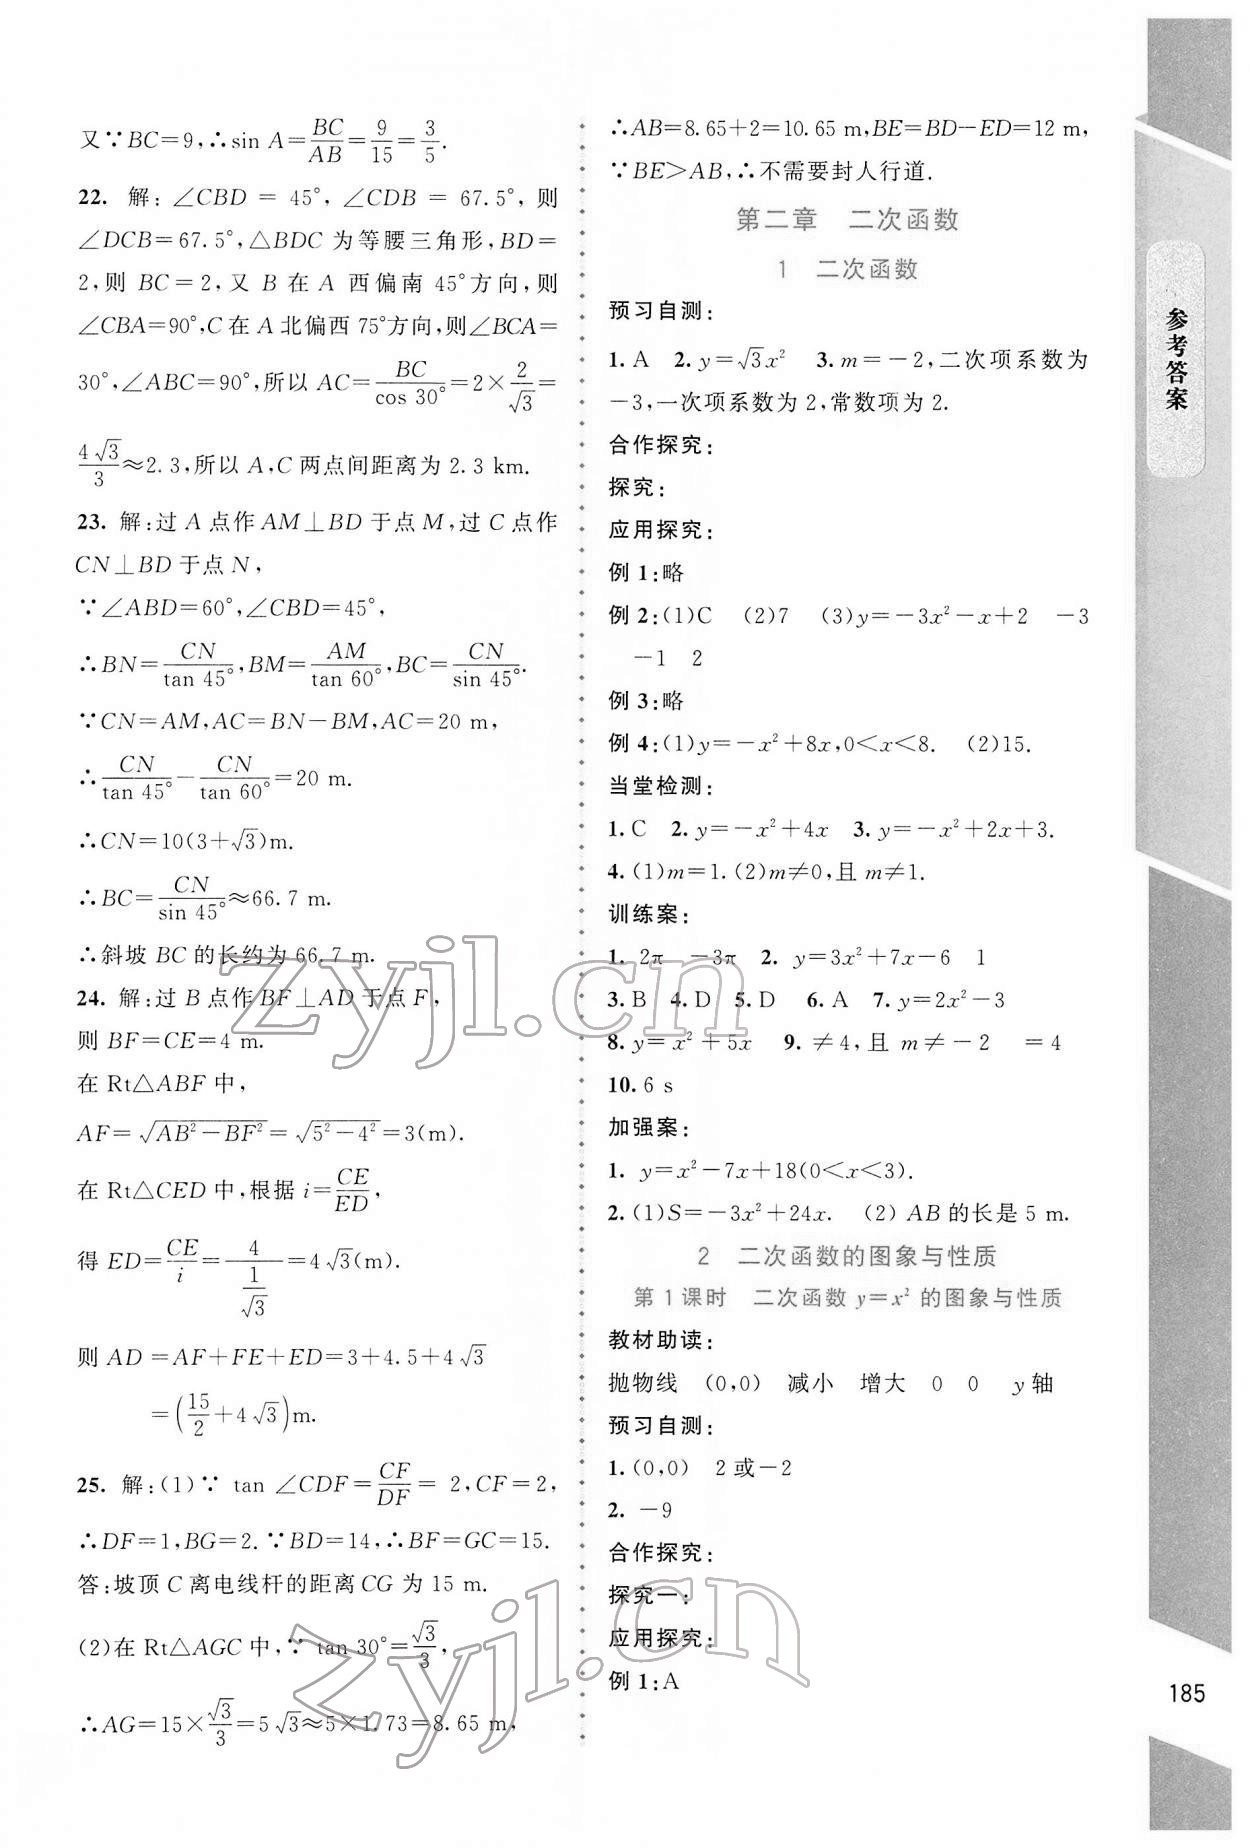 又∵BC=9,∴sin A=BC/AB=9/15=3/5.
22. 解:∠CBD = 45°,∠CDB = 67.5°,则
∠DCB=67.5°,△BDC 为等腰三角形,BD=
2,则 BC=2,又 B 在 A 西偏南 45°方向,则
∠CBA=90°,C在 A 北偏西 75°方向,则∠BCA=
30°,∠ABC=90°,所以 AC=BC/cos 30°=2×2/√3=
4√3/3≈2.3,所以 A,C 两点间距离为 2.3 km.
23. 解:过 A 点作 AM⊥BD 于点 M,过 C 点作
CN⊥BD 于点 N,
∵∠ABD=60°,∠CBD=45°,
∴BN=CN/tan 45°,BM=AM/tan 60°,BC=CN/sin 45°.
∵CN=AM,AC=BN−BM,AC=20 m,
∴CN/tan 45°−CN/tan 60°=20 m.
∴CN=10(3+√3)m.
∴BC=CN/sin 45°≈66.7 m.
∴斜坡 BC 的长约为 66.7 m.
24. 解:过 B 点作 BF⊥AD 于点 F,
则 BF=CE=4 m.
在 Rt△ABF 中,
AF=√(AB²−BF²)=√(5²−4²)=3(m).
在 Rt△CED 中,根据 i=CE/ED,
得 ED=CE/i=4/(1/√3)=4√3(m).
则 AD =AF+FE+ED=3+4.5+4√3
=(15/2+4√3)m.
25. 解:(1)∵ tan ∠CDF=CF/DF= 2,CF=2,
∴DF=1,BG=2.∵BD=14,∴BF=GC=15.
答:坡顶 C 离电线杆的距离 CG 为 15 m.
(2)在 Rt△AGC 中,∵ tan 30°=√3/3,
∴AG=15×√3/3=5√3≈5×1.73=8.65 m,
∴AB=8.65+2=10.65 m,BE=BD−ED=12 m,
∵BE>AB,∴不需要封人行道.
第二章 二次函数
1 二次函数
预习自测:
1. A 2. y=√3x² 3. m=−2,二次项系数为
−3,一次项系数为 2,常数项为 2.
合作探究:
探究:
应用探究:
例 1:略
例 2:(1)C (2)7 (3)y=−3x²−x+2 −3
−1 2
例 3:略
例 4:(1)y=−x²+8x,0<x<8. (2)15.
当堂检测:
1. C 2. y=−x²+4x 3. y=−x²+2x+3.
4. (1)m=1. (2)m≠0,且 m≠1.
训练案:
1. 2π −3π 2. y=3x²+7x−6 1
3. B 4. D 5. D 6. A 7. y=2x²−3
8. y=x²+5x 9. ≠4,且 m≠−2 =4
10. 6 s
加强案:
1. y=x²−7x+18(0<x<3).
2. (1)S=−3x²+24x. (2) AB 的长是 5 m.
2 二次函数的图象与性质
第 1 课时 二次函数 y=x² 的图象与性质
教材助读:
抛物线 (0,0) 减小 增大 0 0 y 轴
预习自测:
1. (0,0) 2 或−2
2. −9
合作探究:
探究一:
应用探究:
例 1:A
参考答案
185
zyjl.cn
zyjl.cn